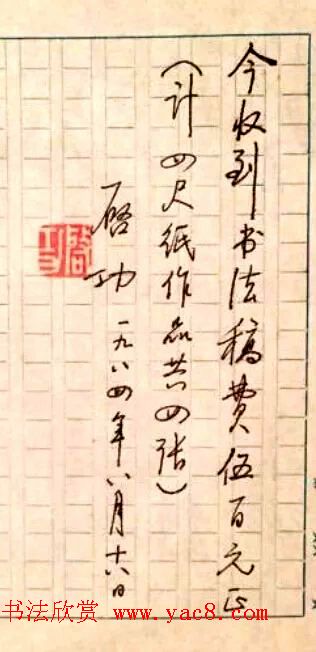 今收到书法稿费伍百元正
（计四尺纸作品共四张）
启功 一九八四年八月十六日
启功
书法欣赏 www.yac8.com